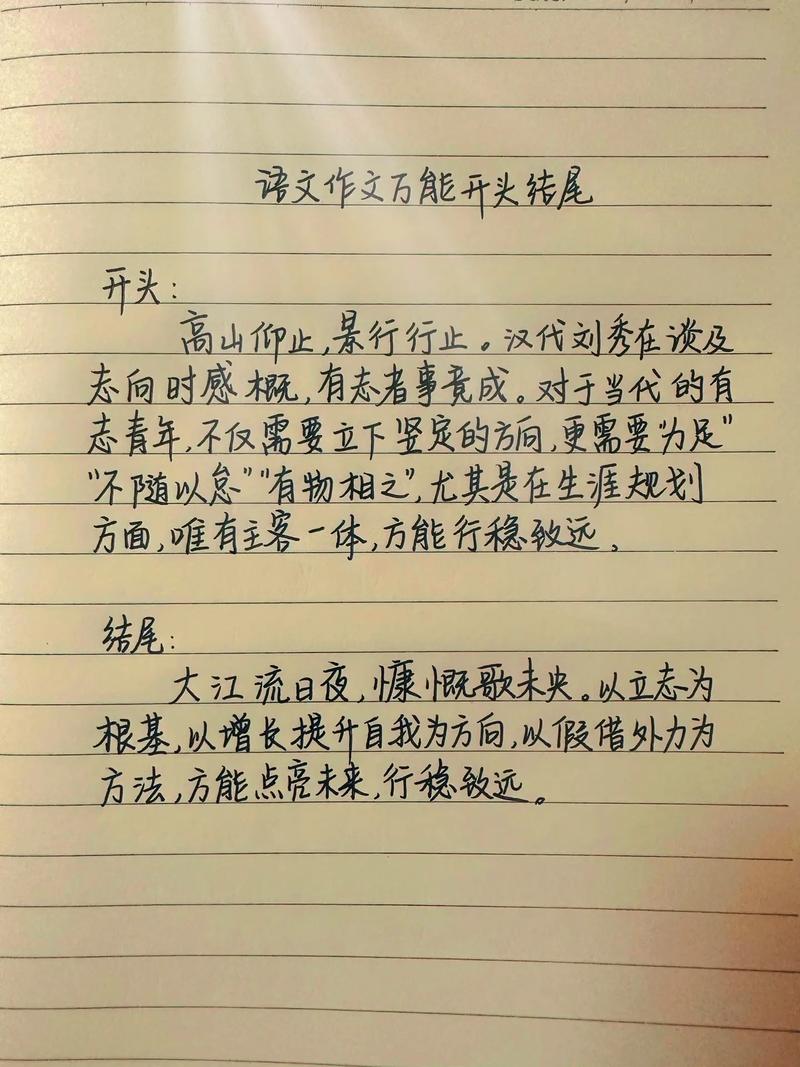 语文作文万能开头结尾
开头：
高山仰止，景行行止。汉代刘秀在谈及
志向时感概，有志者事竟成。对于当代的有
志青年，不仅需要立下坚定的方向，更需要“力足”
“不随以怠”“有物相之”，尤其是在生涯规划
方面，唯有主客一体，方能行稳致远。
结尾：
大江流日夜，慷慨歌未央。以立志为
根基，以增长提升自我为方向，以假借外力为
方法，方能点亮未来，行稳致远。